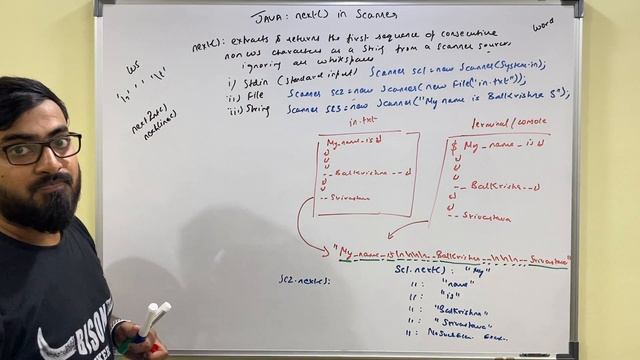 JAVA: next() in Scanner
next(): extracts & returns the first sequence of consecutive
non ws characters as a string from a scanner source
ignoring all whitespaces
word
ws
' ', '\t'
nextInt()
nextLine()
i) Stdin (standard input) Scanner sc1 = new Scanner(System.in);
ii) File Scanner sc2 = new Scanner(new File("in.txt"));
iii) String Scanner sc3 = new Scanner("My name is Balkrishna S");
in.txt
My_name_is↵
↵
↵
↵
--Balkrishna--↵
↵
↵
--Srivastava
Terminal/console
$ My_name_is↵
↵
↵
↵
--Balkrishna--↵
↵
↵
--Srivastava
"My_name_is\n\n\n\n--Balkrishna--\n\n\n--Srivastava"
sc2.next(): sc1.next(): "My"
": "name"
": "is"
": "Balkrishna"
": "Srivastava"
": NoSuchElem
BISON